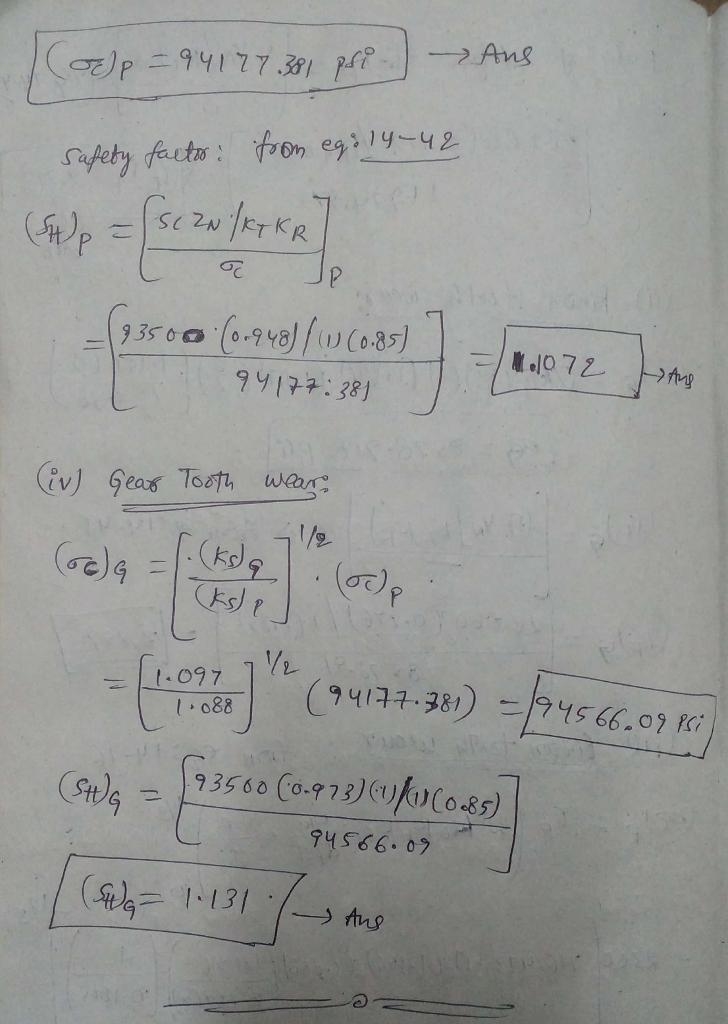 (σc)P = 94177.381 psi → Ans
Safety factor: from eq: 14-42
(SH)P = [SC ZN /KT KR / σc]P
= [93500 (0.948) / (1) (0.85) / 94177.381] = 1.1072 → Ans
(iv) Gear Tooth wear:
(σc)G = [(Ks)G / (Ks)P]^1/2 . (σc)P
= [1.097 / 1.088]^1/2 (94177.381) = 94566.09 psi
(SH)G = [93500 (0.973) (1) / (1) (0.85) / 94566.09]
(SH)G = 1.131 . → Ans